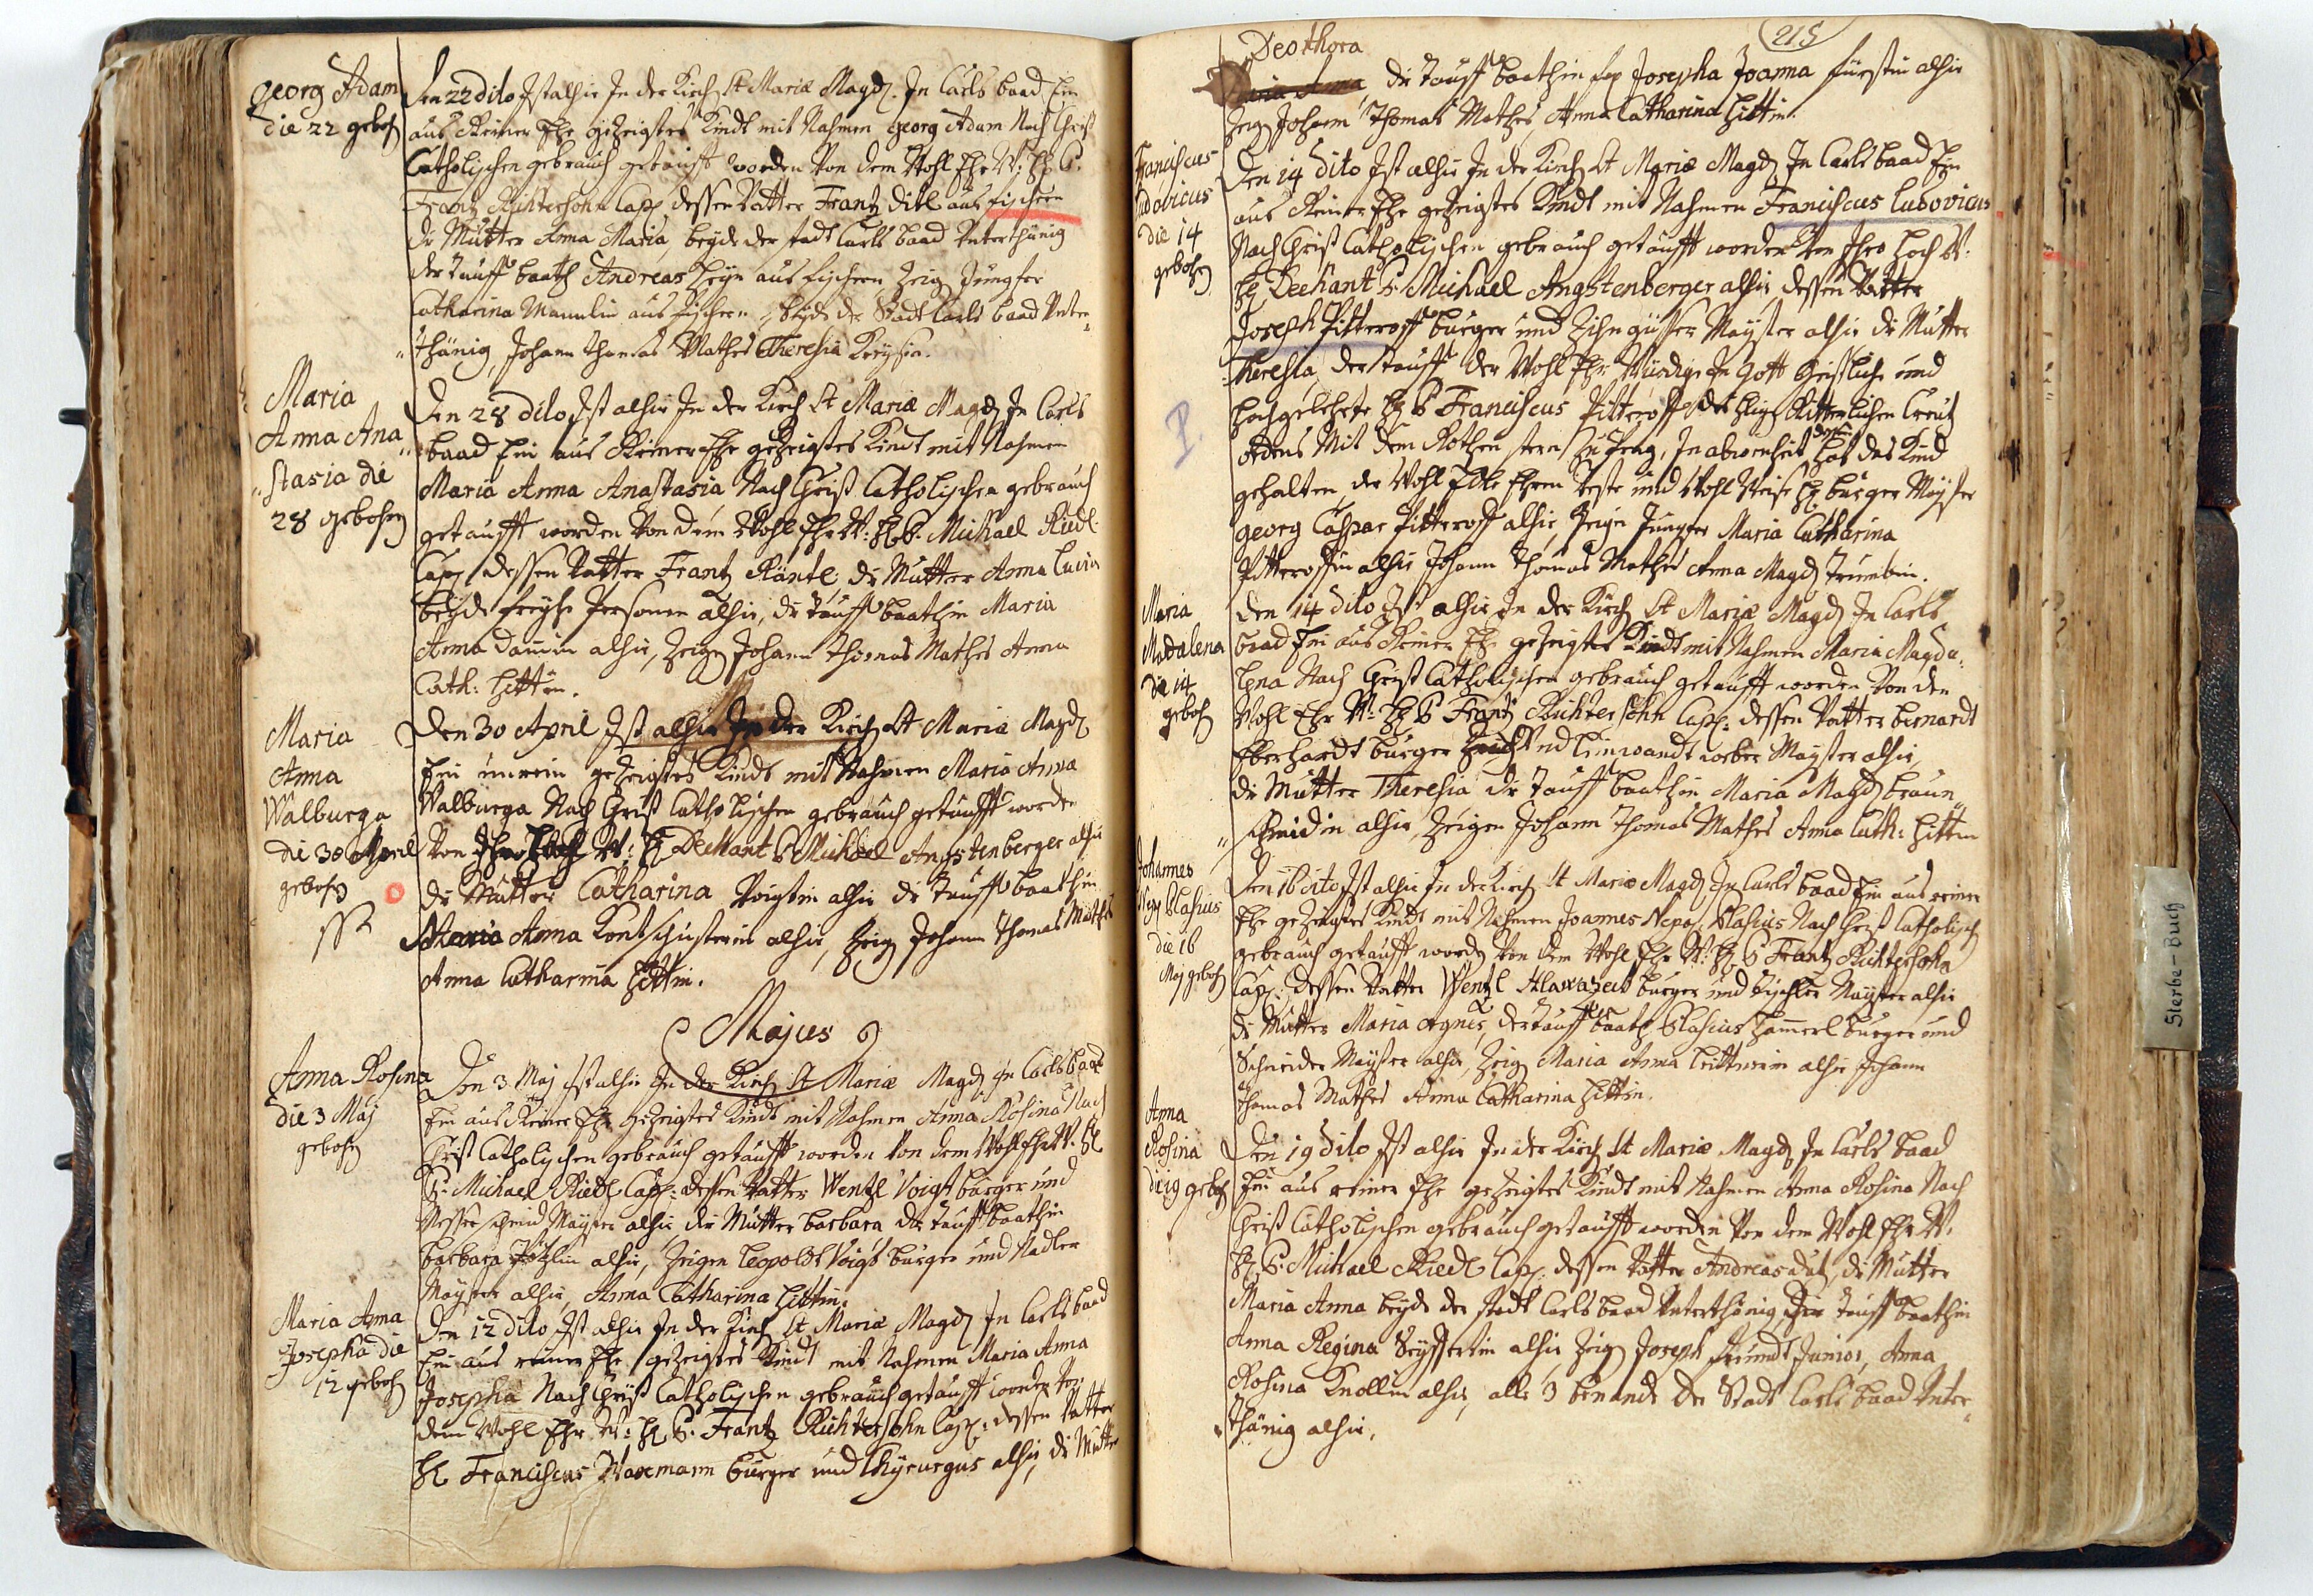 georg Adam
die 22 gebohrn
Den 22 dito Ist alhir In der Kirch St Mariæ Magd. In Carls baad Ein
aus Reiner Ehe gezeigtes Kindt mit Nahmen georg Adam Nach Christ
Catholischen gebrauch getaufft worden Von dem Wohl Ehr W: H: P.
Frantz Richtersohn Capp dessen Vatter Frantz Ditl aus fischern
die Mutter Anna Maria, beyde der stadt Carls baad Unterthänig
der Tauff baath Andreas Heyn aus fischern Zeig Jungfer
Catharina Mannlin aus fischern, beyde der Stadt Carls baad Unter„
„thänig, Johann Thomas Mathes Theresia
Maria
Anna Ana„
„stasia die
28 gebohrn
Den 28 dito Ist alhir In der Kirch St Mariæ Magd In Carls
baad Ein aus Reiner Ehe gezeigtes Kindt mit Nahmen
Maria Anna Anastasia Nach Christ Catholischen gebrauch
getaufft worden Von dem Wohl Ehr W: H P. Michael Riedl
Capp dessen Vatter Frantz Räntl die Mutter Anna Lucia
beyde freyhe Personen alhir, die Tauff baathin Maria
Anna Damin alhir, Zeigen Johann Thomas Mathes Anna
Cath: Hittin.
Maria
Anna
Walburga
die 30 April
gebohrn
Den 30 April Ist alhir In der Kirch St Mariæ Magd
Ein unrein gezeigtes Kindt mit Nahmen Maria Anna
Walburga Nach Christ Catholischen gebrauch getaufft worden
Von Ihro Hoch W: H Dechant P Michael Angstenberger alhir
die Mutter Catharina Voigtin alhir die Tauff baathin
Maria Anna Kontschusterin alhir, Zeig Johann Thomas Mathes
Anna Catharina Hittin.
Majus
Anna Rosina
die 3 Maj
gebohrn
Den 3 Maj Ist alhir In der Kirch St Mariæ Magd In Carls baad
Ein aus Reiner Ehe gezeigtes Kindt mit Nahmen Anna Rosina Nach
Christ Catholischen gebrauch getaufft worden Von dem Wohl Ehr W. H
P. Michael Riedl Capp: dessen Vatter Wentzl Voigt bürger und
Messerschmid Mayster alhir die Mutter barbara die Tauff baathin
barbara alhir, Zeigen Leopoldt Voigt bürger und Nadler
Mayster alhir, Anna Catharina Hittin.
Maria Anna
Josepha die
12 gebohrn
Den 12 dito Ist alhir In der Kirch St Mariæ Magd In Carls baad
Ein aus reiner Ehe gezeigtes Kindt mit Nahmen Maria Anna
Josepha Nach Christ Catholischen gebrauch getaufft worden Von
dem Wohl Ehr W: H P. Frantz Richtersohn Capp: dessen Vatter
H Franciscus Waxmann bürger und Chyrurgus alhir, die Mutter
215
Deothora
Maria Anna, die Tauff baathin Josepha Joanna fürstin alhir
Zeig Johann Thomas Mathes Anna Catharina Hittin.
Franciscus
Ludovicus
die 14
gebohrn
Den 14 dito Ist alhir In der Kirch St Mariæ Magd In Carls baad Ein
aus Reiner Ehe gezeigtes Kindt mit Nahmen Franciscus Ludovicus
Nach Christ Catholischen gebrauch getaufft worden Von Ihro Hoch W:
H Dechant P. Michael Angstenberger alhir dessen Vatter
Joseph Pitteroff bürger und Zihngüsser Mayster alhir die Mutter
Theresia der Tauff der Wohl Ehr Würdige In Gott Geistliche und
Hochgelehrte H P Franciscus Pitteroff des Ritterlichen Creutz
ordens Mit dem Rothen stern zu Prag, In abwesenheit hat das Kind
gehalten der Wohl Edle Ehren Veste und Wohl Weise H bürger Mayster
georg Caspar Pitteroff alhir, Zeigen Jungfer Maria Catharina
Pitteroffin alhir Johann Thomas Mathes Anna Magd
Maria
Madalena
die 14
gebohrn
Den 14 dito Ist alhir In der Kirch St Mariæ Magd In Carls
baad Ein aus Reiner Ehe gezeigtes Kindt mit Nahmen Maria Magda„
lena Nach Christ Catholischen gebrauch getaufft worden Von den
Wohl Ehr W: H P Frantz Richtersohn Capp: dessen Vatter bernardt
Eberhardt bürger Und Leinwandt weber Mayster alhir,
die Mutter Theresia die Tauff baathin Maria Magd braun„
„schmidin alhir, Zeigen Johann Thomas Mathes Anna Cath: Hittin
Johannes
Nep Blasius
die 16
Maj gebohrn
Den 16 dito Ist alhir In der Kirch St Mariæ Magd In Carls baad Ein aus reiner
Ehe gezeigtes Kindt mit Nahmen Joannes Nepo, Blasius Nach Christ Catholisch
gebrauch getaufft worden Von dem Wohl Ehr W: H P Frantz Richtersohn
Capp: dessen Vatter Wentzl bürger und Tischler Mayster alhir
die Mutter Maria Agnes, der Tauff baath Blasius Hammerl bürger und
Schneider Mayster alhir, Zeig Maria Anna alhir Johann
Thomas Mathes Anna Catharina Hittin.
Anna
Rosina
die 19 gebohrn
Den 19 dito Ist alhir In der Kirch St Mariæ Magd In Carls baad
Ein aus reiner Ehe gezeigtes Kindt mit Nahmen Anna Rosina Nach
Christ Catholischen gebrauch getaufft worden Von dem Wohl Ehr W.
H P. Michael Riedl Capp. dessen Vatter Andreas die Mutter
Maria Anna beyde der stadt Carls baad Unterthänig, die Tauff baathin
Anna Regina Seyffertin alhir, Zeig Joseph Junior, Anna
Rosina Knollin alhir, alle 3 benandt der Stadt Carls baad Unter„
„thänig alhir,
Sterbe-Buch